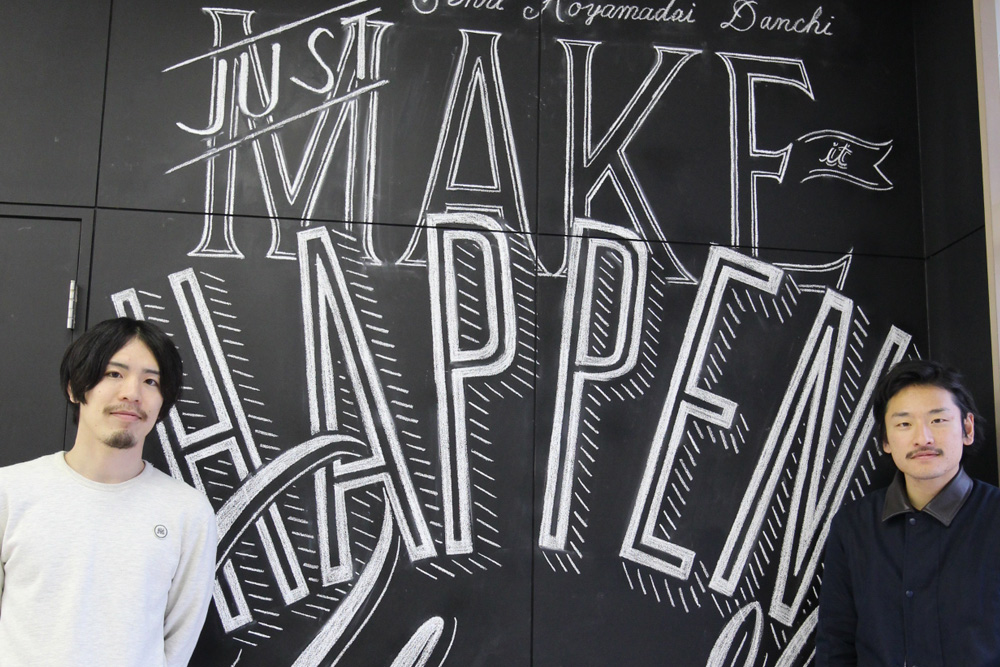 Koyamadai Danchi
JUST
MAKE
it
HAPPEN